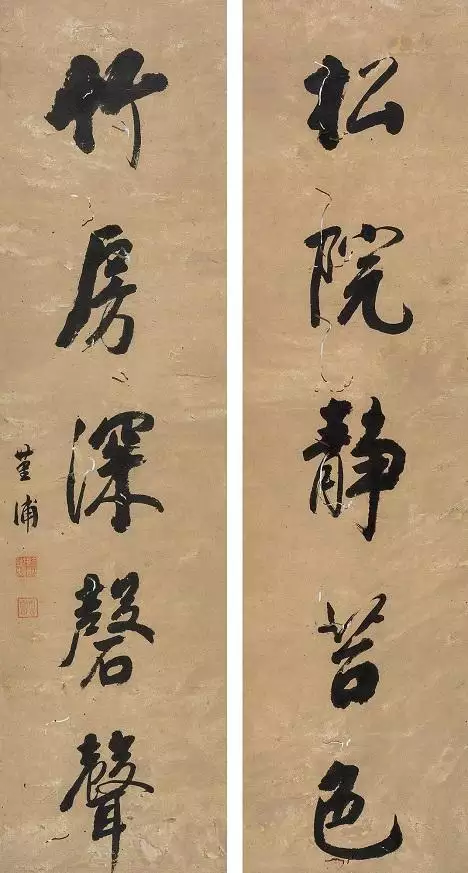 松院静苔色
竹房深磬聲
堇浦